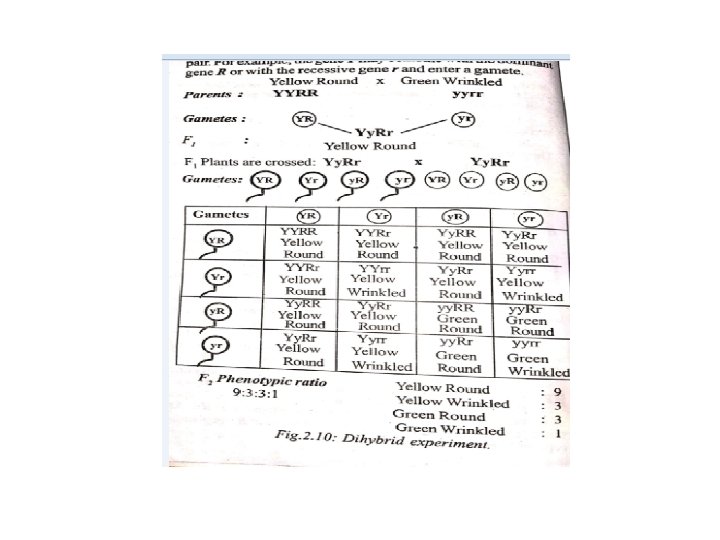 pair. For example, the gene may with the dominant
gene R or with the recessive gene r and enter a gamete.
Yellow Round x Green Wrinkled
Parents : YYRR yyrr
Gametes : YR yr
YyRr
F1 :
Yellow Round
F1 Plants are crossed: YyRr x YyRr
Gametes: YR Yr yR yr YR Yr yR yr
Gametes YR Yr yR yr
YR YYRR YYRr YyRR YyRr
Yellow Yellow Yellow Yellow
Round Round Round Round
Yr YYRr YYrr YyRr Yyrr
Yellow Yellow Yellow Yellow
Round Wrinkled Round Wrinkled
yR YyRR YyRr yyRR yyRr
Yellow Yellow Green Green
Round Round Round Round
yr YyRr Yyrr yyRr yyrr
Yellow Yellow Green Green
Round Wrinkled Round Wrinkled
F2 Phenotypic ratio
9:3:3:1
Yellow Round : 9
Yellow Wrinkled : 3
Green Round : 3
Green Wrinkled : 1
Fig.2.10: Dihybrid experiment.